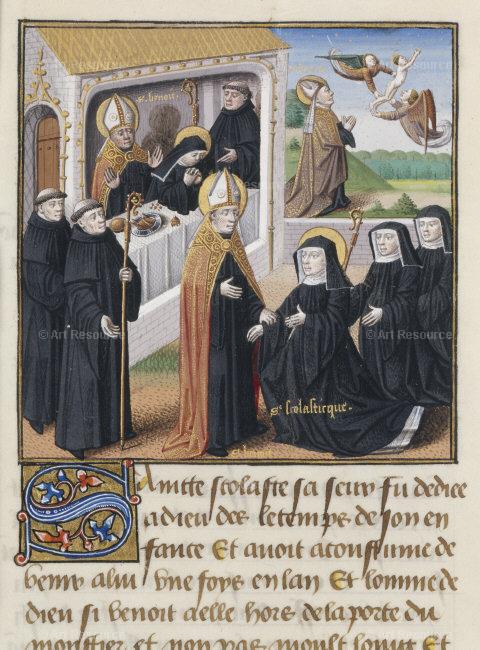 st. benoit.
© Art Resource
© Art Resource
© Art Resource
© Art Resource
ste scolasticque.
Saintte scolaste sa seur fu dediee
a dieu des le temps de son en
fance Et avoit acoustume de
venir a lui une foys en lan Et lomme de
dieu si venoit a elle hors de la porte du
moustier et non pas moult loing Et